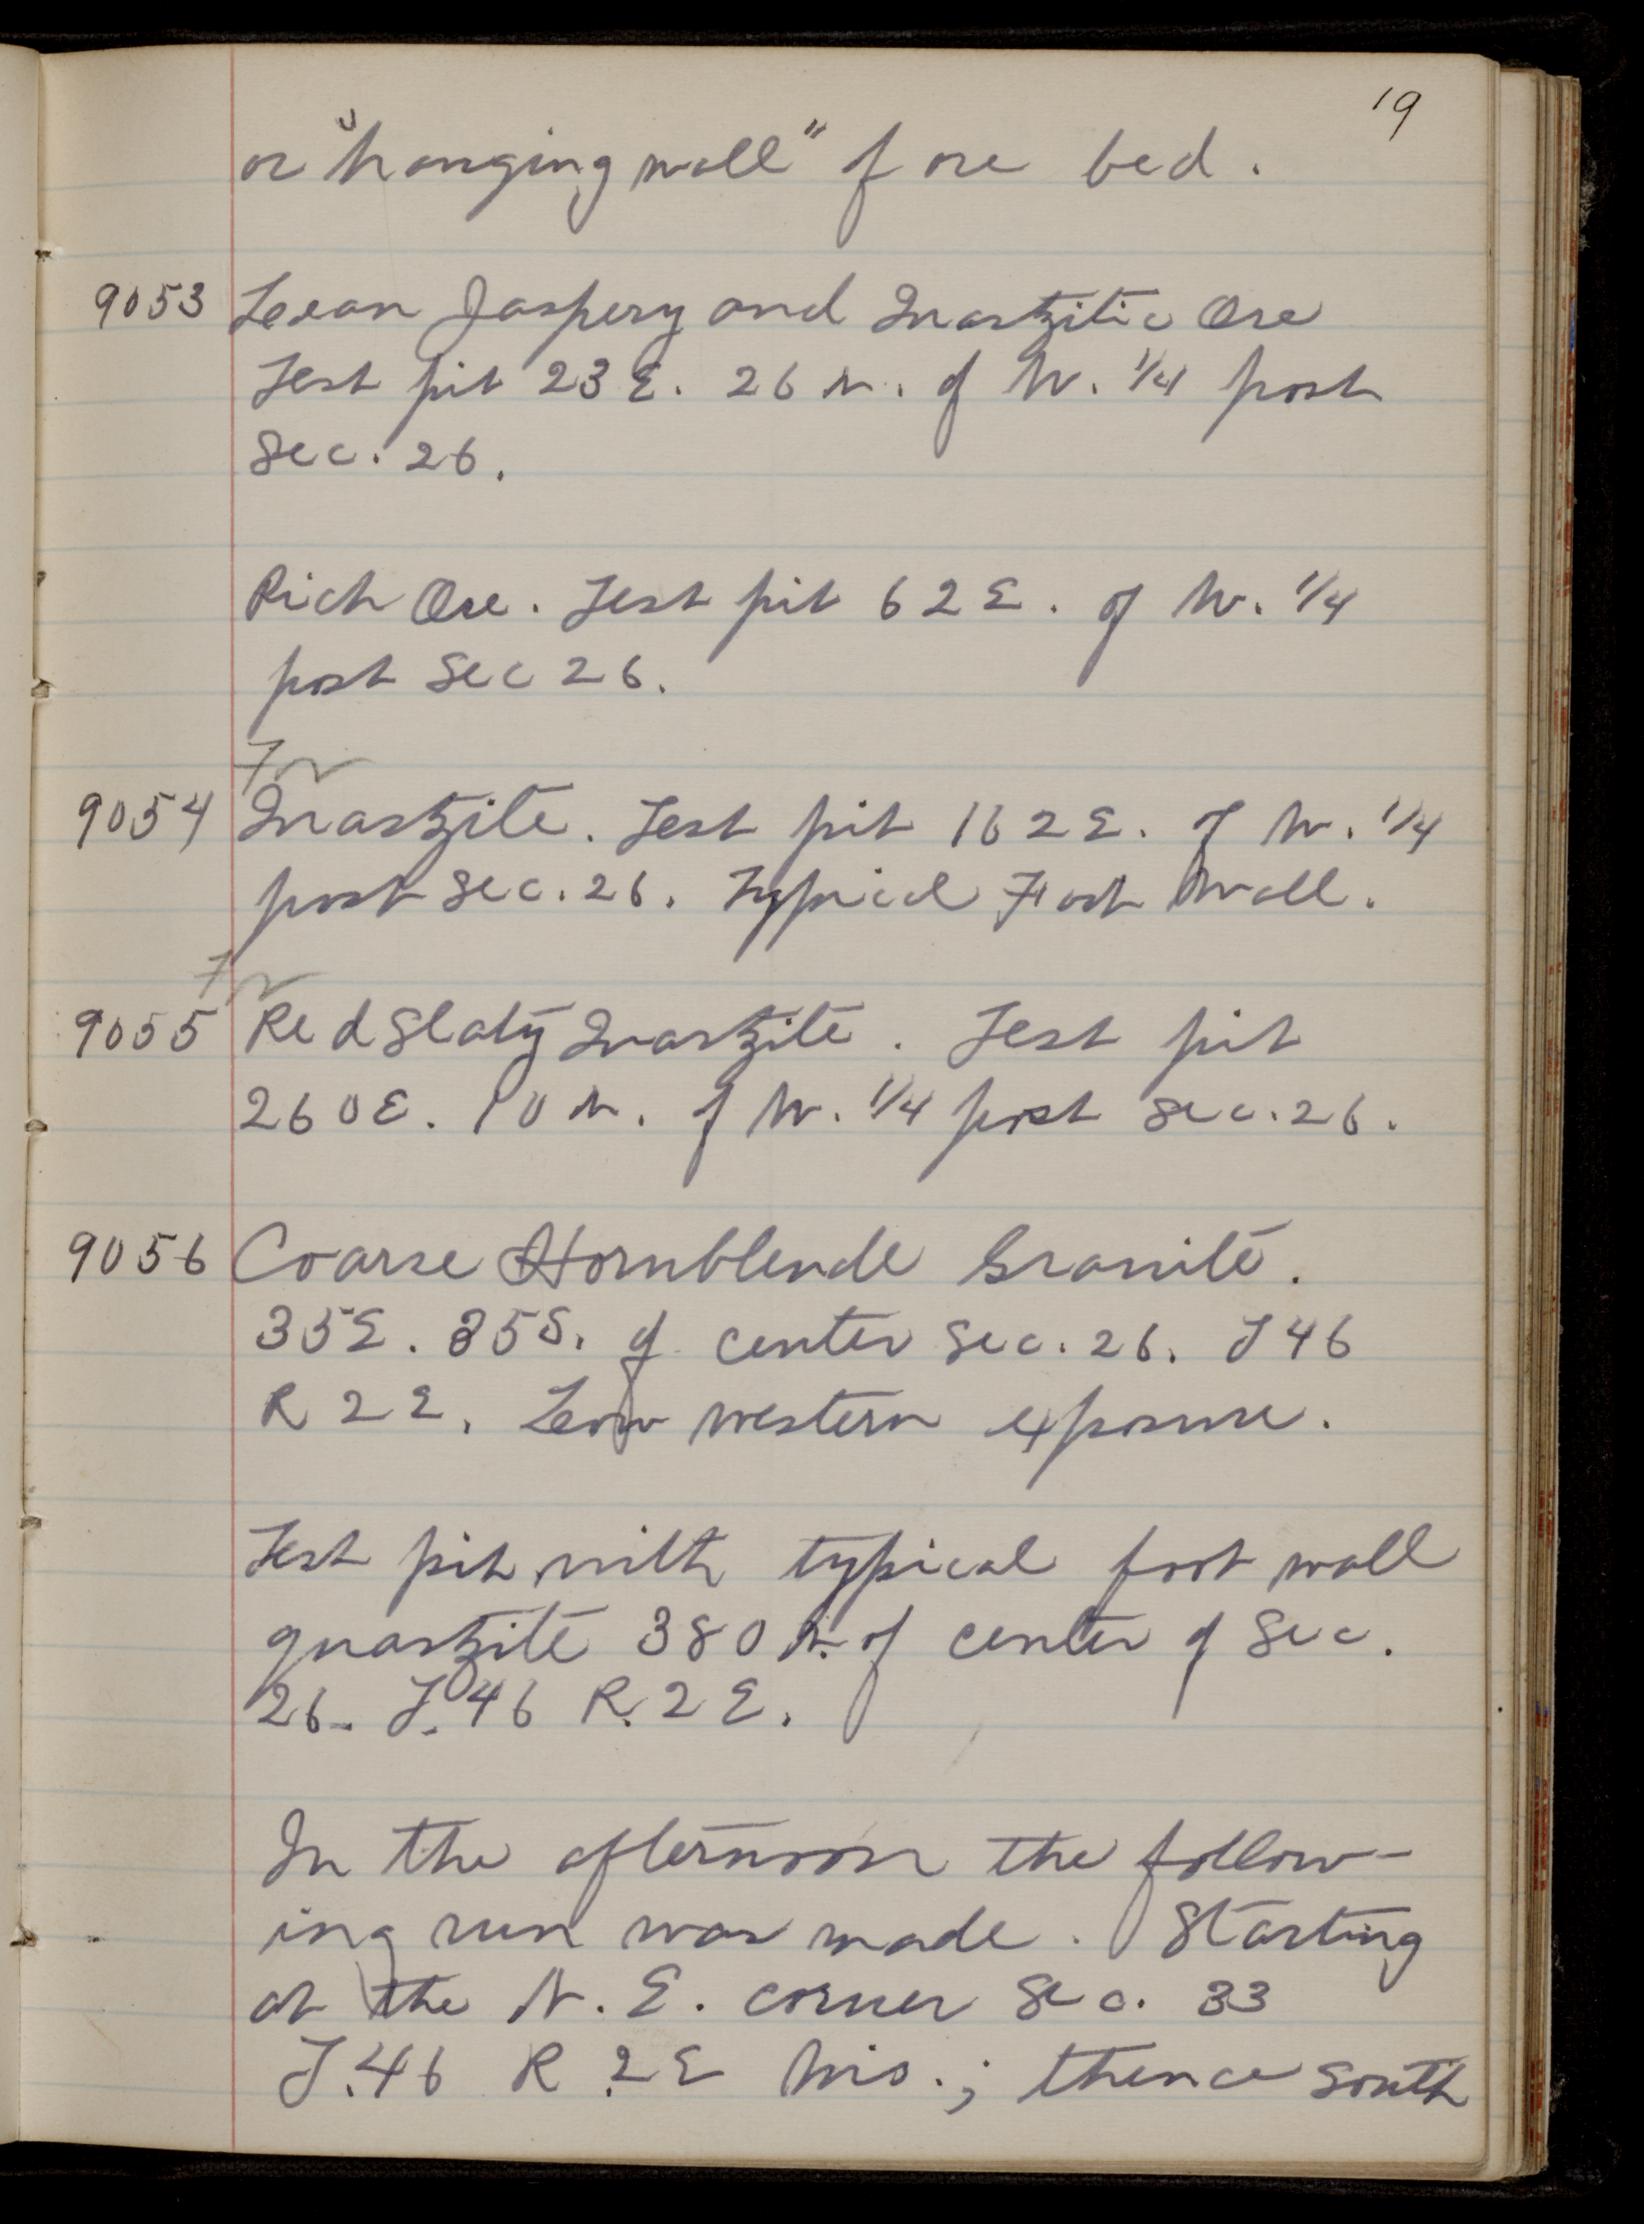 19
or "hanging wall" of ore bed.
9053 Lean Jaspery and Quartzitic Ore
Test pit 23 E. 26 N. of W. 1/4 post
Sec. 26.
Rich Ore. Test pit 62 E. of W. 1/4
post Sec 26.
9054 Quartzite. Test pit 162 E. of W. 1/4
post Sec. 26. Typical Foot Wall.
9055 Red Slaty Quartzite. Test pit
260 E. 10 N. of W. 1/4 post Sec. 26.
9056 Coarse Hornblende Granite.
35 E. 35 S. of center Sec. 26. T 46
R 2 E. Low western exposure.
Test pit with typical foot wall
quartzite 380 N. of center of Sec.
26. T. 46 R. 2 E.
In the afternoon the follow-
ing run was made. Starting
at the N. E. corner Sec. 33
T. 46 R. 2 E Wis.; thence South